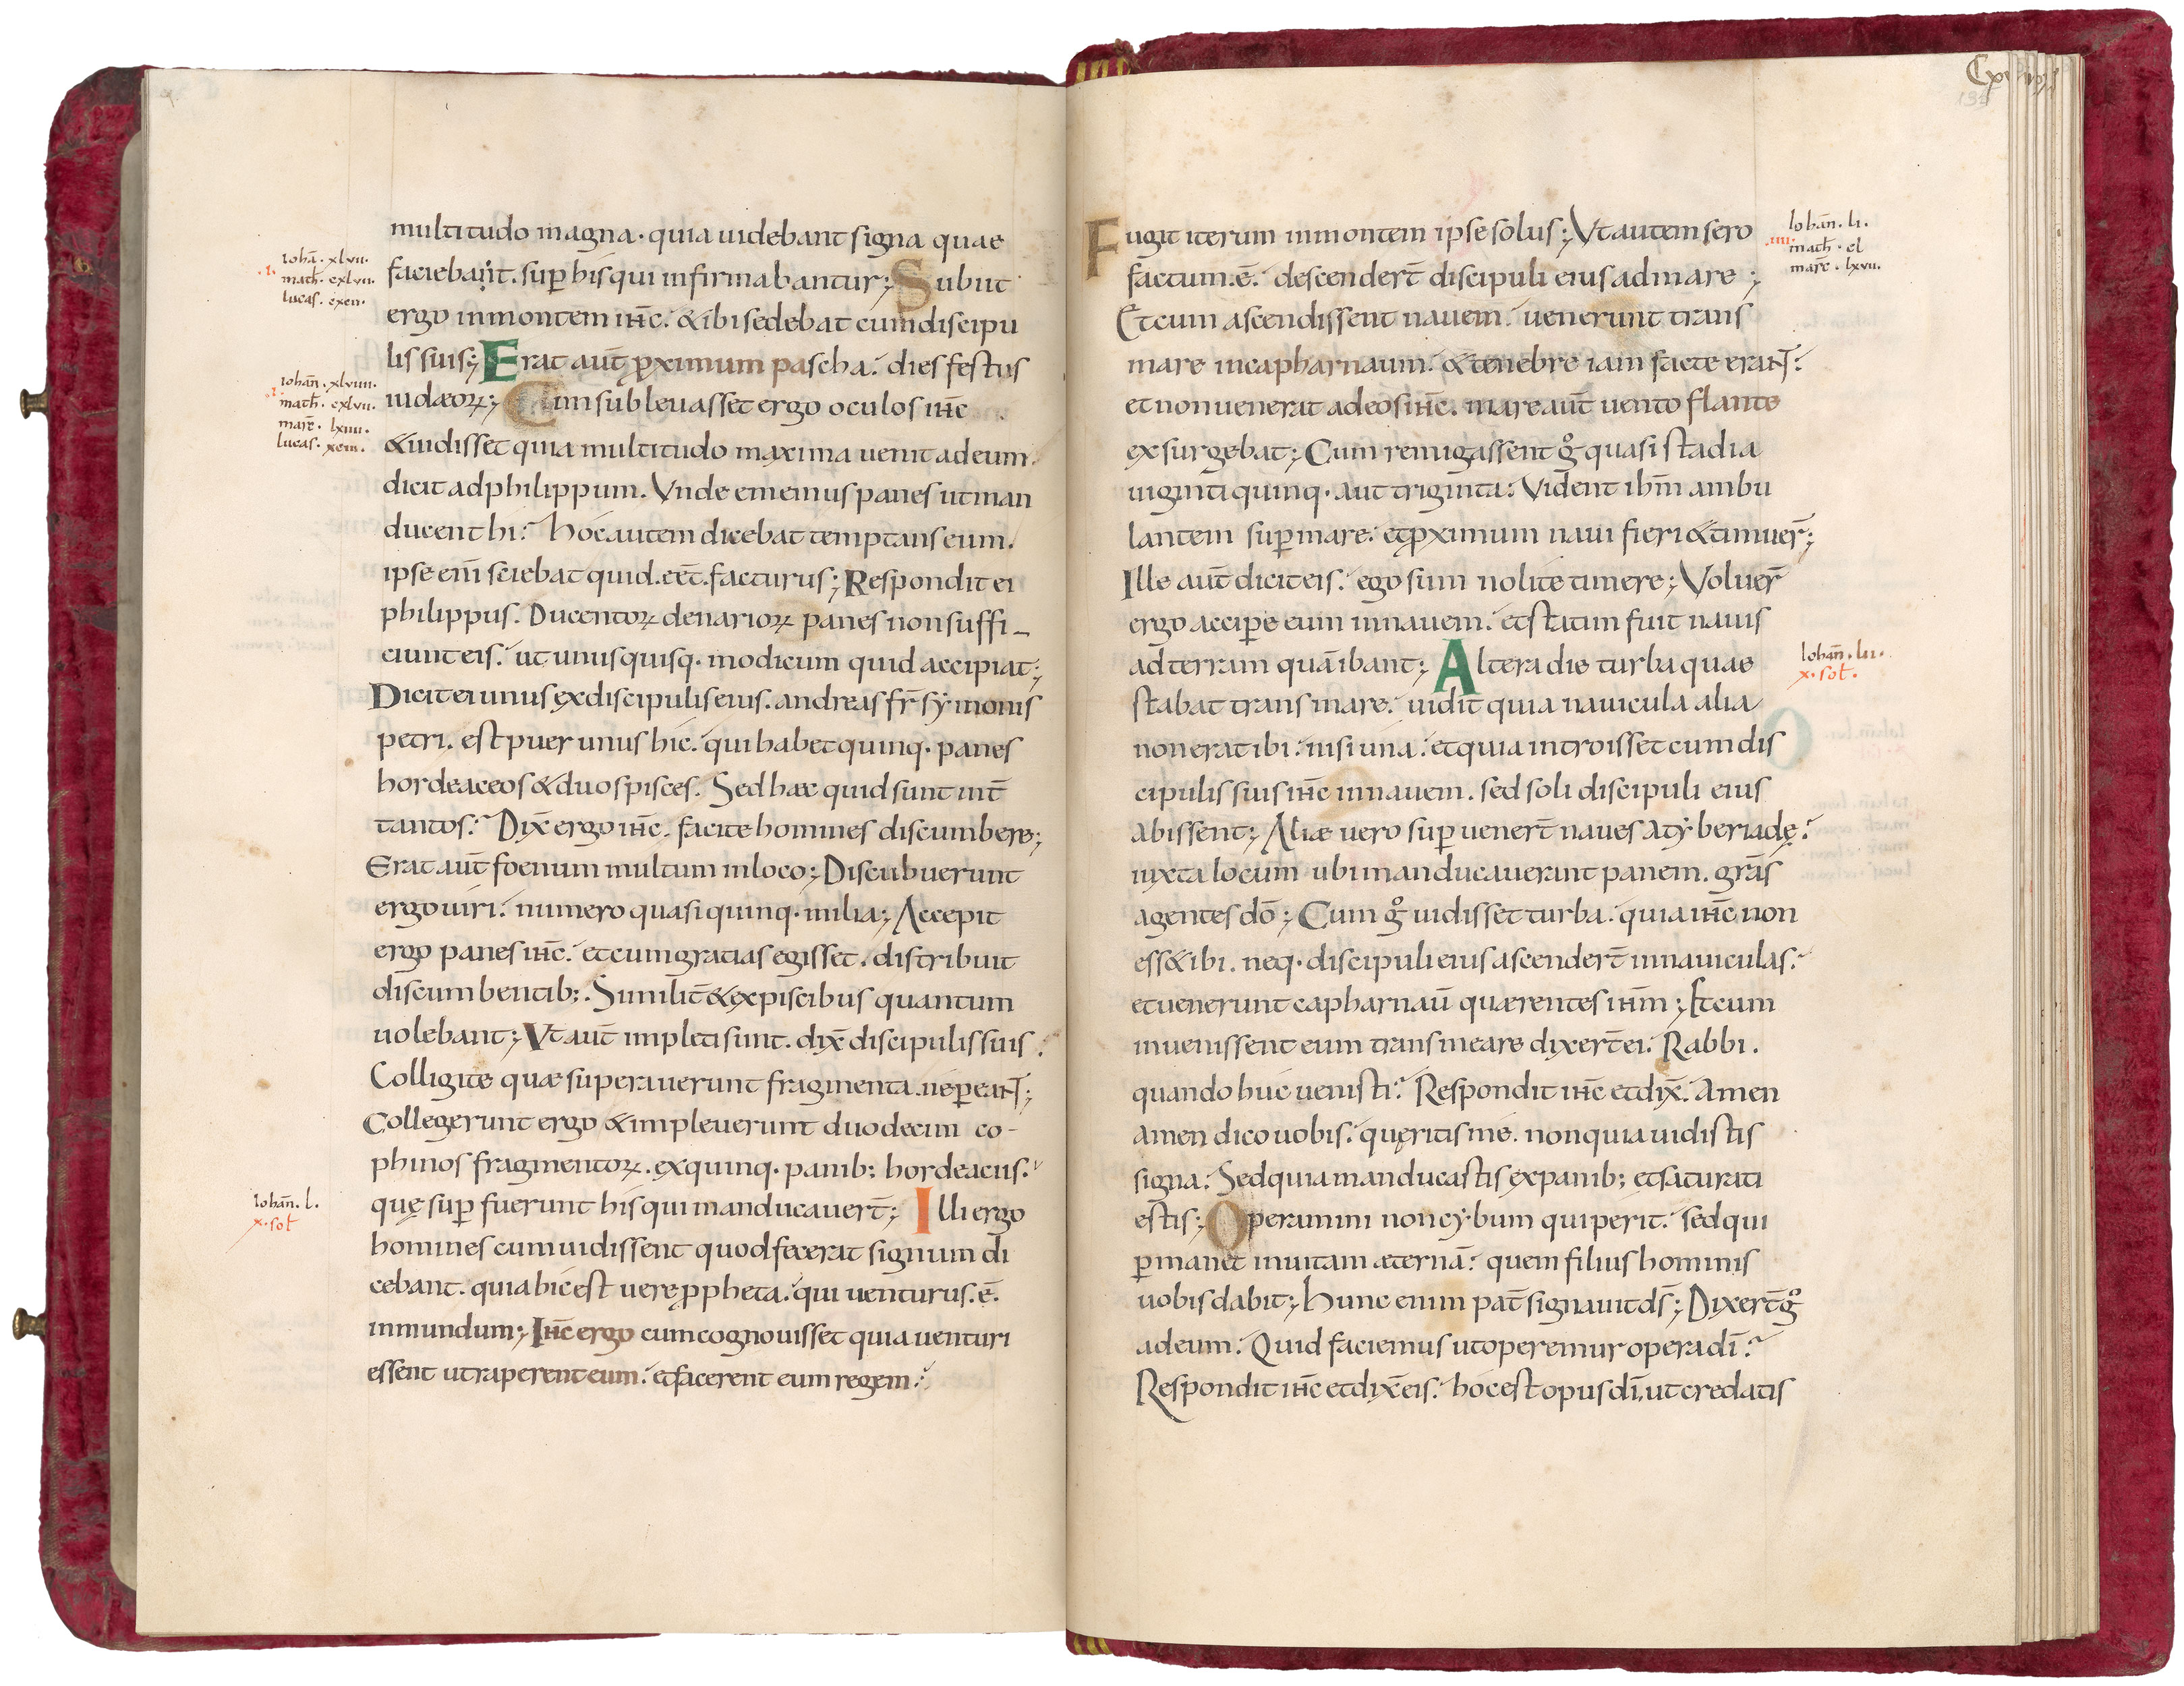 multitudo magna· quia uidebant signa quae
iohā· xlvii·
·i·
math̄· cxlvii·
lucas· xcii·
faciebant· sup̄ his qui infirmabantur; Subiit
ergo in montem ih̄c· & ibi sedebat cum discipu
lis suis; Erat aut̄ ꝓximum pascha· dies festus
iohan̄· xlviiii·
·i·
math̄· cxlvii·
marc̄· lxiiii·
lucas· xciii·
iudæoꝝ; Cum subleuasset ergo oculos ih̄c
& uidisset quia multitudo maxima uenit ad eum·
dicit ad philippum· Vnde ememus panes ut man
ducent hi? hoc autem dicebat temptans eum·
ipse eni̅ sciebat quid·eēt·facturus; Respondit ei
philippus· Ducentoꝝ denarioꝝ panes non suffi-
ciunt eis· ut unusquisq· modicum quid accipiat;
Dicit ei unus ex discipulis eius· andreas fr̄ sẏmonis
petri· est puer unus hic· qui habet quinq· panes
hordeaceos & duos pisces· Sed hæc quid sunt int̄
tantos? Dix̄ ergo ih̄c· facite homines discumbere;
Erat aut̄ foenum multum in loco; Discubuerunt
ergo uiri· numero quasi quinq· milia; Accepit
ergo panes ih̄c· et cum gratias egisset· distribuit
discumbentib;· Similit̄ & ex piscibus quantum
uolebant; Vt aut̄ impleti sunt· dix̄ discipulis suis·
Colligite quæ superauerunt fragmenta· ne ꝑeant;
Collegerunt ergo & impleuerunt duodecim co-
phinos fragmentoꝝ· ex quinq· panib; hordeaciis·
iohan̄· l·
x·sol̄
quę sup̄ fuerunt his qui manducauert̄; Illi ergo
homines cum uidissent quod fecerat signum di
cebant· quia hic est uere ꝓpheta· qui uenturus·ē·
in mundum; Ih̄c ergo cum cognouisset quia uenturi
essent ut raperent eum· et facerent eum regem·
Fugit iterum in montem ipse solus; Vt autem sero
Iohan̄· li·
·iiii·
math̄· cl
marc̄· lxvii·
factum·ē· descendert̄ discipuli eius ad mare;
Et cum ascendissent nauem· uenerunt trans
mare in capharnaum· & tenebre iam facte erant·
et non uenerat ad eos ih̄c· mare aut̄ uento flante
exsurgebat; Cum remigassent gͦ quasi stadia
uiginti quinq· aut triginta· Vident ih̄m ambu
lantem sup̄ mare· et ꝓximum naui fieri & timuer̄;
Ille aut̄ dicit eis· ego sum nolite timere; Voluer̄
ergo accip̄e eum in nauem· et statim fuit nauis
ad terram quā ibant; Altera die turba quae
Iohan̄· lii·
x·sol̄·
stabat trans mare· uidit quia nauicula alia
non erat ibi· nisi una· et quia introisset cum dis
cipulis suis ih̄c in nauem· sed soli discipuli eius
abissent; Aliæ uero sup̄uenert̄ naues a tẏberiadę·
iuxta locum ubi manducauerant panem· grās
agentes dō; Cum gͦ uidisset turba· quia ih̄c non
ess& ibi· neq· discipuli eius ascendert̄ in nauiculas·
et uenerunt capharnaū quærentes ih̄m; Et cum
inuenissent eum trans mare dixert̄ ei· Rabbi·
quando huc uenisti? Respondit ih̄c et dix̄· Amen
amen dico uobis· quęritis me· non quia uidistis
signa· Sed quia manducastis ex panib; et saturati
estis; Operamini non cẏbum qui perit· sed qui
ꝑmanet in uitam æternā· quem filius hominis
uobis dabit; hunc enim pat̄ signauit ds̄; Dixert̄ gͦ
ad eum· Quid faciemus ut operemur opera dī?
Respondit ih̄c et dix̄ eis· hoc est opus dī, ut credatis